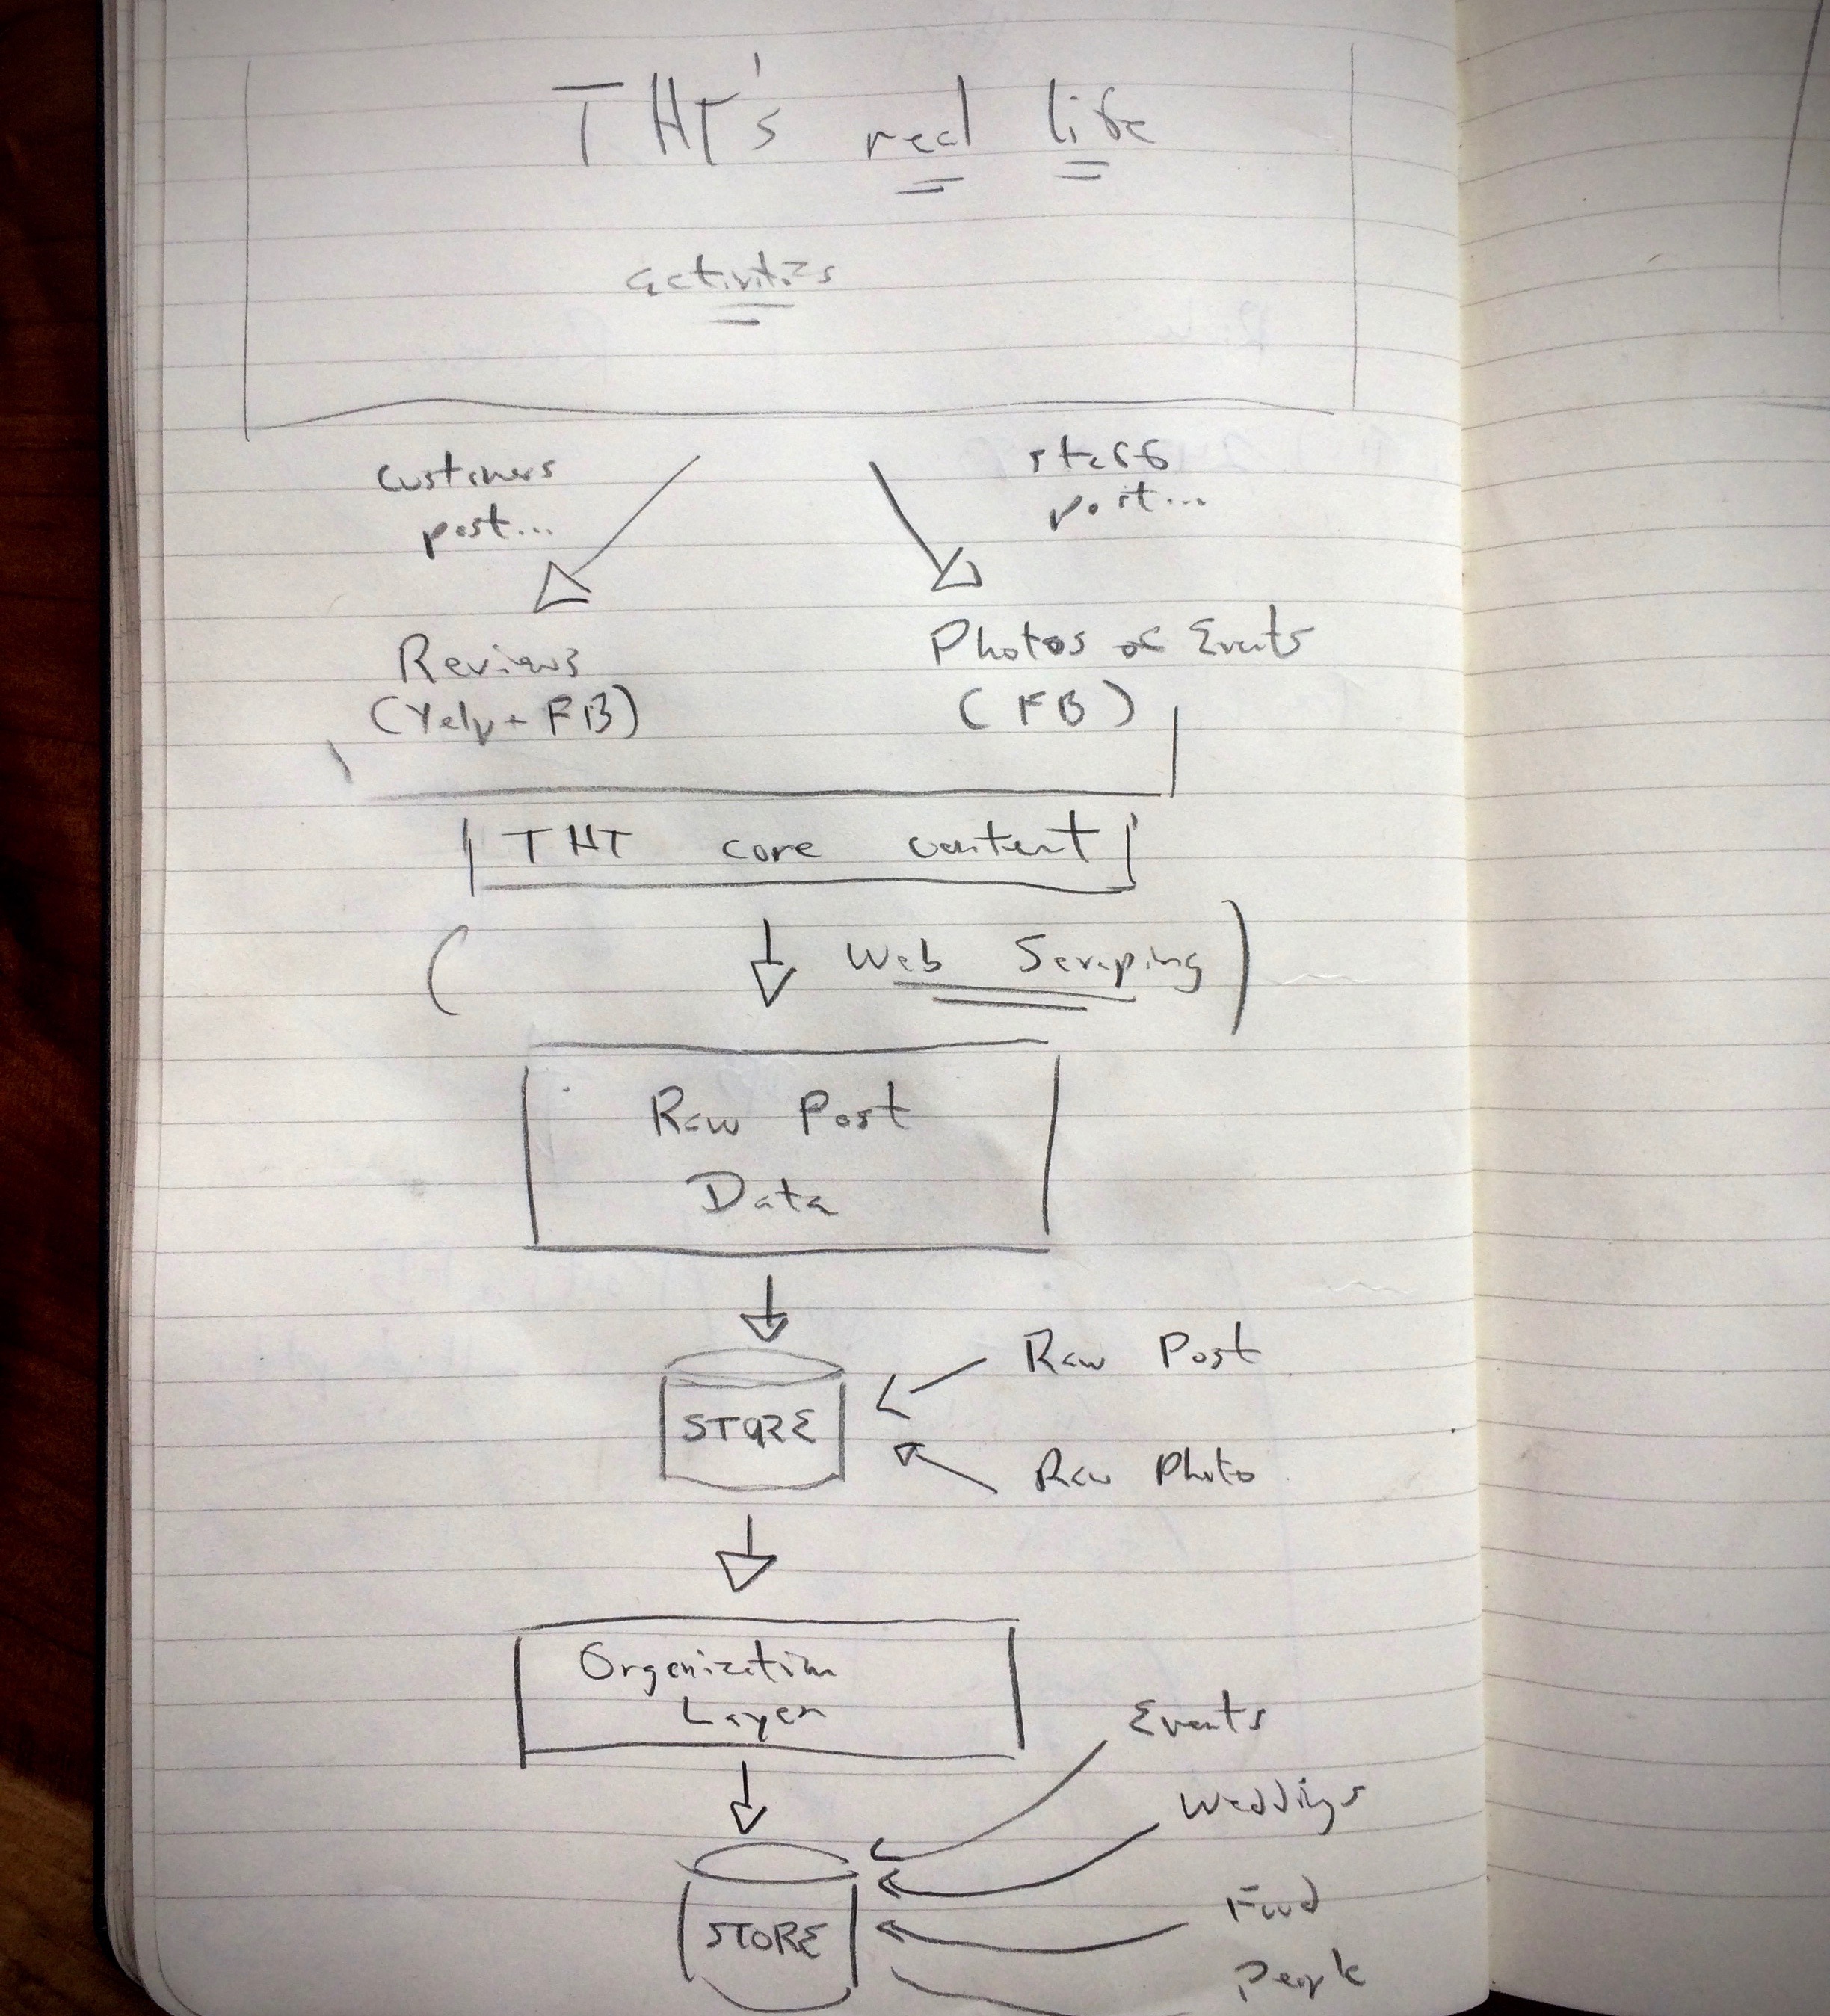 THT's real life
activities
customers
post...
staff
post...
Reviews
(Yelp + FB)
Photos of Events
(FB)
THT core content
( Web Scraping )
Raw Post
Data
STORE
Raw Post
Raw Photo
Organization
Layer
STORE
Events
Weddings
Food
People